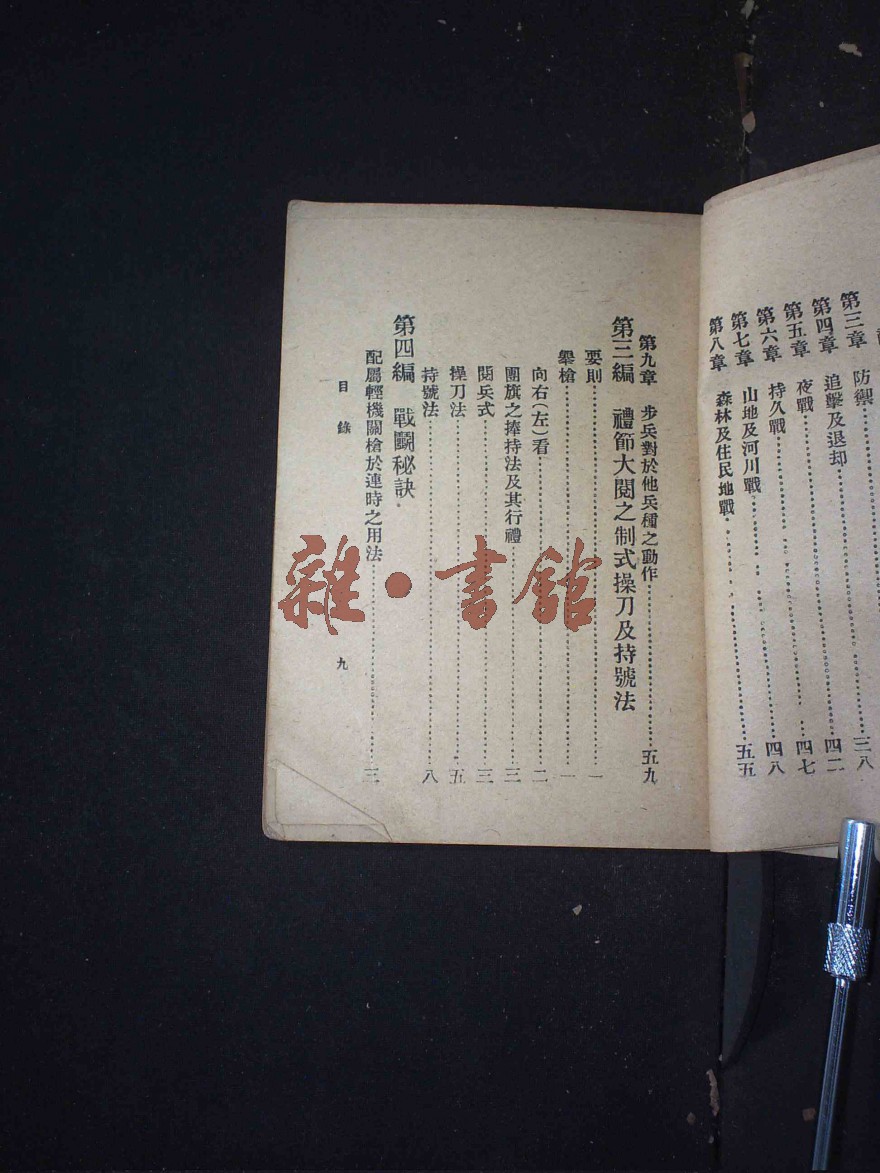 第三章 防禦……三八
第四章 追擊及退却……四二
第五章 夜戰……四七
第六章 持久戰……四八
第七章 山地及河川戰……
第八章 森林及住民地戰……五五
第九章 步兵對於他兵種之動作……五九
第三編 禮節大閱之制式操刀及持號法
要則……一
舉槍……一
向右(左)看……二
團旗之捧持法及其行禮……三
閱兵式……三
操刀法……五
持號法……八
第四編 戰鬭秘訣
配屬輕機關槍於連時之用法……三
目錄
九
雜·書館